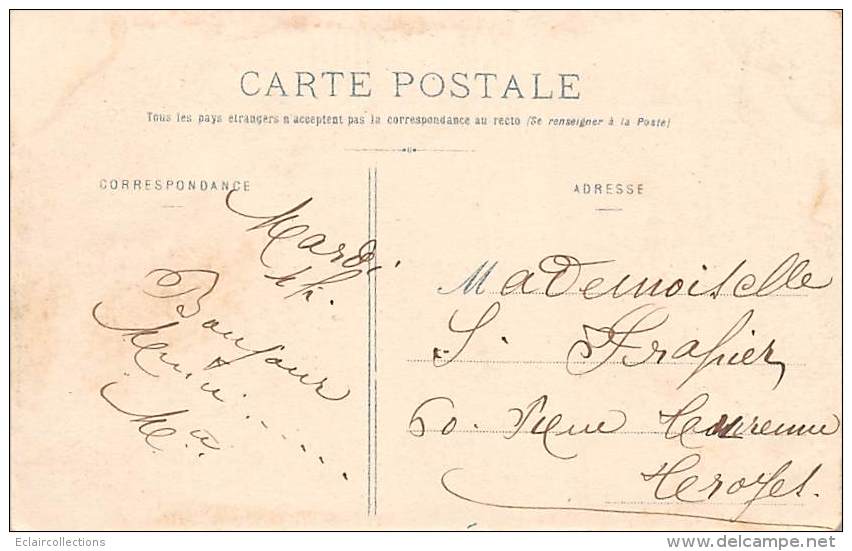 CARTE POSTALE
Tous les pays étrangers n'acceptent pas la correspondance au recto (Se renseigner à la Poste)
CORRESPONDANCE
ADRESSE
Mardi
Bonjour
Mademoiselle
S. Frapier
60. Rue
Eclaircollections
www.delcampe.net